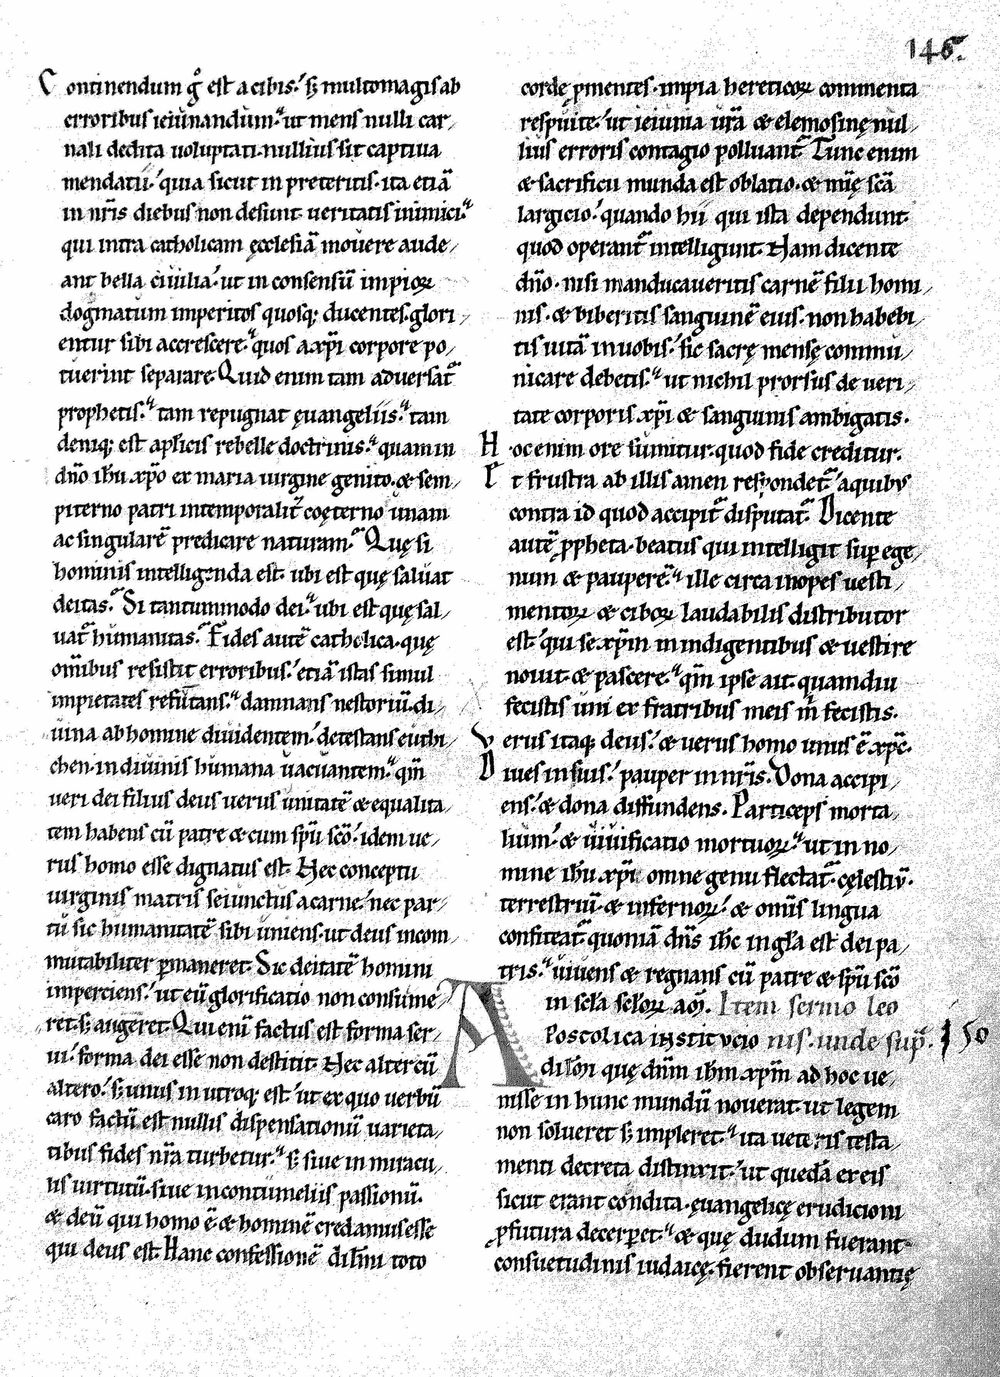 146.
Continendum gͦ est a cibis. s; multo magis ab
erroribus ieiunandum. ut mens nulli car
nali dedita uoluptati. nullius sit captiua
mendatii. quia sicut in preteritis. ita etiā
in nr̄is diebus non desunt ueritatis inimici.
qui intra catholicam ęcclesiā mouere aude
ant bella ciuilia. ut in consensū impioꝝ
dogmatum imperitos quosq; ducentes. glori
entur sibi accrescere. quos a xp̄i corpore po
tuerint separare. Quid enim tam aduersat᷑
prophetis. tam repugnat ęuangeliis. tam
deniq; est aplicis rebelle doctrinis. quam in
dn̄o ihu xp̄o ex maria uirgine genito. & sem
piterno patri intemporalit᷑ coęterno unam
ac singularē predicare naturam. Quę si
hominis intelligenda est. ubi est quę saluat
deitas. Si tantummodo dei. ubi est quę sal
uat᷑ humanitas. Fides autē catholica. quę
om̄ibus resistit erroribus. etiā istas simul
impietates refutans. damnans nestoriū. di
uina ab homine diuidentem. detestans euthi
chen. in diuinis humana uacuantem. qm̄
ueri dei filius deus uerus unitatē & equalita
tem habens cū patre & cum sp̄u scō. idem ue
rus homo esse dignatus est. Nec conceptu
uirginis matris seiunctus a carne. nec par
tū sic humanitatē sibi uniens. ut deus incom
mutabiliter ꝑmaneret. Sic deitatē homini
imperciens. ut eū glorificatio non consume
ret. s; augeret. Qui enī factus est forma ser
ui. forma dei esse non destitit. Nec alter cū
altero. s; unus in utroq; est. ut ex quo uerbū
caro factū est nullis dispensationū uarieta
tibus fides nr̄a turbetur. s; siue in miracu
lis uirtutū. siue in contumeliis passionū.
& deū qui homo ē. & hominē credamus esse
qui deus est. Hanc confessionē dilm̄i toto
corde ꝓmentes. impia hereticoꝝ commenta
respuite. ut ieiunia ur̄a & elemosinę nul
lius erroris contagio polluant᷑. Tunc enim
& sacrificii munda est oblatio. & mīę scā
largicio. quando hii qui ista dependunt
quod operant᷑ intelligunt. Nam dicente
dn̄o. nisi manducaueritis carnē filii homi
nis. & biberitis sanguinē eius. non habebi
tis uitā in uobis. sic sacrę mensę commu
nicare debetis. ut nichil prorsus de ueri
tate corporis xp̄i & sanguinis ambigatis.
Hoc enim ore sumitur. quod fide creditur.
Et frustra ab illis amen respondet᷑. a quibus
contra id quod accipit᷑ disputat᷑. Dicente
autē ꝓpheta. beatus qui intelligit suꝑ ege
num & pauperē. ille circa inopes uesti
mentoꝝ & ciboꝝ laudabilis distributor
est. qui se xp̄m in indigentibus & uestire
nouit. & pascere. qm̄ ipse ait. quamdiu
fecistis uni ex fratribus meis m̄ fecistis.
Verus itaq; deus. & uerus homo unus ē xp̄c.
Diues in suis. pauper in nr̄is. Dona accipi
ens. & dona diffundens. Particeps morta
lium. & uiuificatio mortuoꝝ. ut in no
mine ihu xp̄i omne genu flectat᷑. cęlestiū.
terrestriū. & infernoꝝ. & om̄is lingua
confiteat᷑ quoniā dn̄s ihc in gl̄a est dei pa
tris. uiuens & regnans cū patre & sp̄u scō
in scl̄a scl̄oꝝ am̄. Item sermo leo
Apostolica institvcio nis. unde sup̄. 150
dilm̄ quę dn̄m ihm xp̄m ad hoc ue
nisse in hunc mundū nouerat. ut legem
non solueret s; impleret. ita ueteris testa
menti decreta distinxit. ut quedā ex eis
sicut erant condita. ęuangelicę erudicioni
ꝓfutura decerꝑet. & quę dudum fuerant
consuetudinis iudaicę. fierent obseruantię